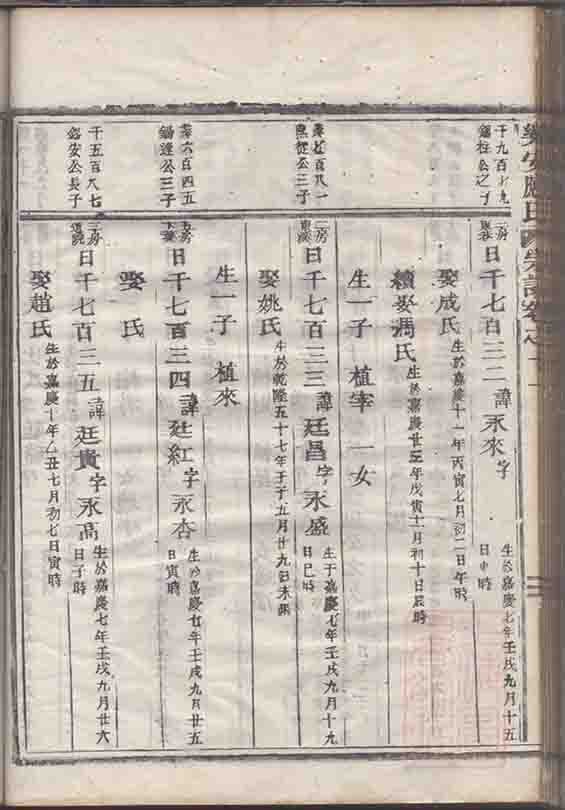 千九百七九
二房
曰千七百三二 諱永來字
生於嘉慶七年壬戌九月十五
日申時
娶成氏 生於嘉慶十一年丙寅七月初二日午時
續娶馮氏 生於嘉慶廿三年戊寅十一月初十日辰時
生一子 植宰 一女
公三子
二房
曰千七百三三 諱廷昌字永盛
生于嘉慶七年壬戌九月十九
日巳時
娶姚氏 生於乾隆五十七年壬子五月廿九日未時
生一子 植來
六百四五
錫達公三子
曰千七百三四 諱廷紅字永杏
生於嘉慶七年壬戌九月廿五
日寅時
娶 氏
千五百八七
錫安公長子
三房
曰千七百三五 諱廷貴字永高
生於嘉慶七年壬戌九月廿六
日子時
娶趙氏 生於嘉慶十年乙丑七月初七日寅時